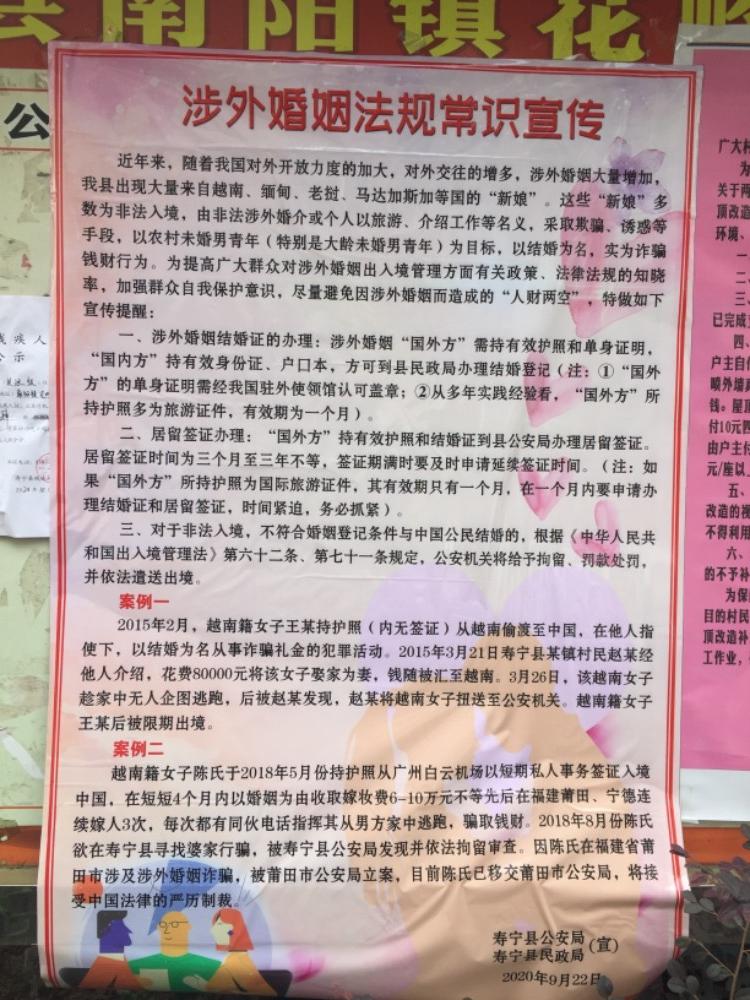 县南阳镇花岭
公
涉外婚姻法规常识宣传
近年来，随着我国对外开放力度的加大，对外交往的增多，涉外婚姻大量增加，
我县出现大量来自越南、缅甸、老挝、马达加斯加等国的“新娘”。这些“新娘”多
数为非法入境，由非法涉外婚介或个人以旅游、介绍工作等名义，采取欺骗、诱惑等
手段，以农村未婚男青年（特别是大龄未婚男青年）为目标，以结婚为名，实为诈骗
钱财行为。为提高广大群众对涉外婚姻出入境管理方面有关政策、法律法规的知晓
率，加强群众自我保护意识，尽量避免因涉外婚姻而造成的“人财两空”，特做如下
宣传提醒：
一、涉外婚姻结婚证的办理：涉外婚姻“国外方”需持有效护照和单身证明，
“国内方”持有效身份证、户口本，方可到县民政局办理结婚登记（注：①“国外
方”的单身证明需经我国驻外使领馆认可盖章；②从多年实践经验看，“国外方”所
持护照多为旅游证件，有效期为一个月）。
二、居留签证办理：“国外方”持有效护照和结婚证到县公安局办理居留签证。
居留签证时间为三个月至三年不等，签证期满时要及时申请延续签证时间。（注：如
果“国外方”所持护照为国际旅游证件，其有效期只有一个月，在一个月内要申请办
理结婚证和居留签证，时间紧迫，务必抓紧）。
三、对于非法入境，不符合婚姻登记条件与中国公民结婚的，根据《中华人民共
和国出入境管理法》第六十二条、第七十一条规定，公安机关将给予拘留、罚款处罚，
并依法遣送出境。
案例一
2015年2月，越南籍女子王某持护照（内无签证）从越南偷渡至中国，在他人指
使下，以结婚为名从事诈骗礼金的犯罪活动。2015年3月21日寿宁县某镇村民赵某经
他人介绍，花费80000元将该女子娶家为妻，钱随被汇至越南。3月26日，该越南女子
趁家中无人企图逃跑，后被赵某发现，赵某将越南女子扭送至公安机关。越南籍女子
王某后被限期出境。
案例二
越南籍女子陈氏于2018年5月份持护照从广州白云机场以短期私人事务签证入境
中国，在短短4个月内以婚姻为由收取嫁妆费6-10万元不等先后在福建莆田、宁德连
续嫁人3次，每次都有同伙电话指挥其从男方家中逃跑，骗取钱财。2018年8月份陈氏
欲在寿宁县寻找婆家行骗，被寿宁县公安局发现并依法拘留审查。因陈氏在福建省莆
田市涉及涉外婚姻诈骗，被莆田市公安局立案，目前陈氏已移交莆田市公安局，将接
受中国法律的严厉制裁。
寿宁县公安局
寿宁县民政局
（宣）
2020年9月22日
残疾人
公示
广大村
为
关于两
顶改造
环境、
一
二、
三、
已完成
四、
户主自
喷外墙
钱。屋顶
付10元
由户主付
元/座以
五、
改造的视
不得利用
六、
的不予补
为保
目的村民
顶改造补
工作业，